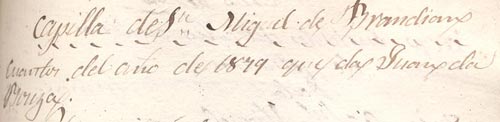 Capilla de Sn Miguel de Brandian
Cuentas del año de 1879 que da Juan da
Bouza.